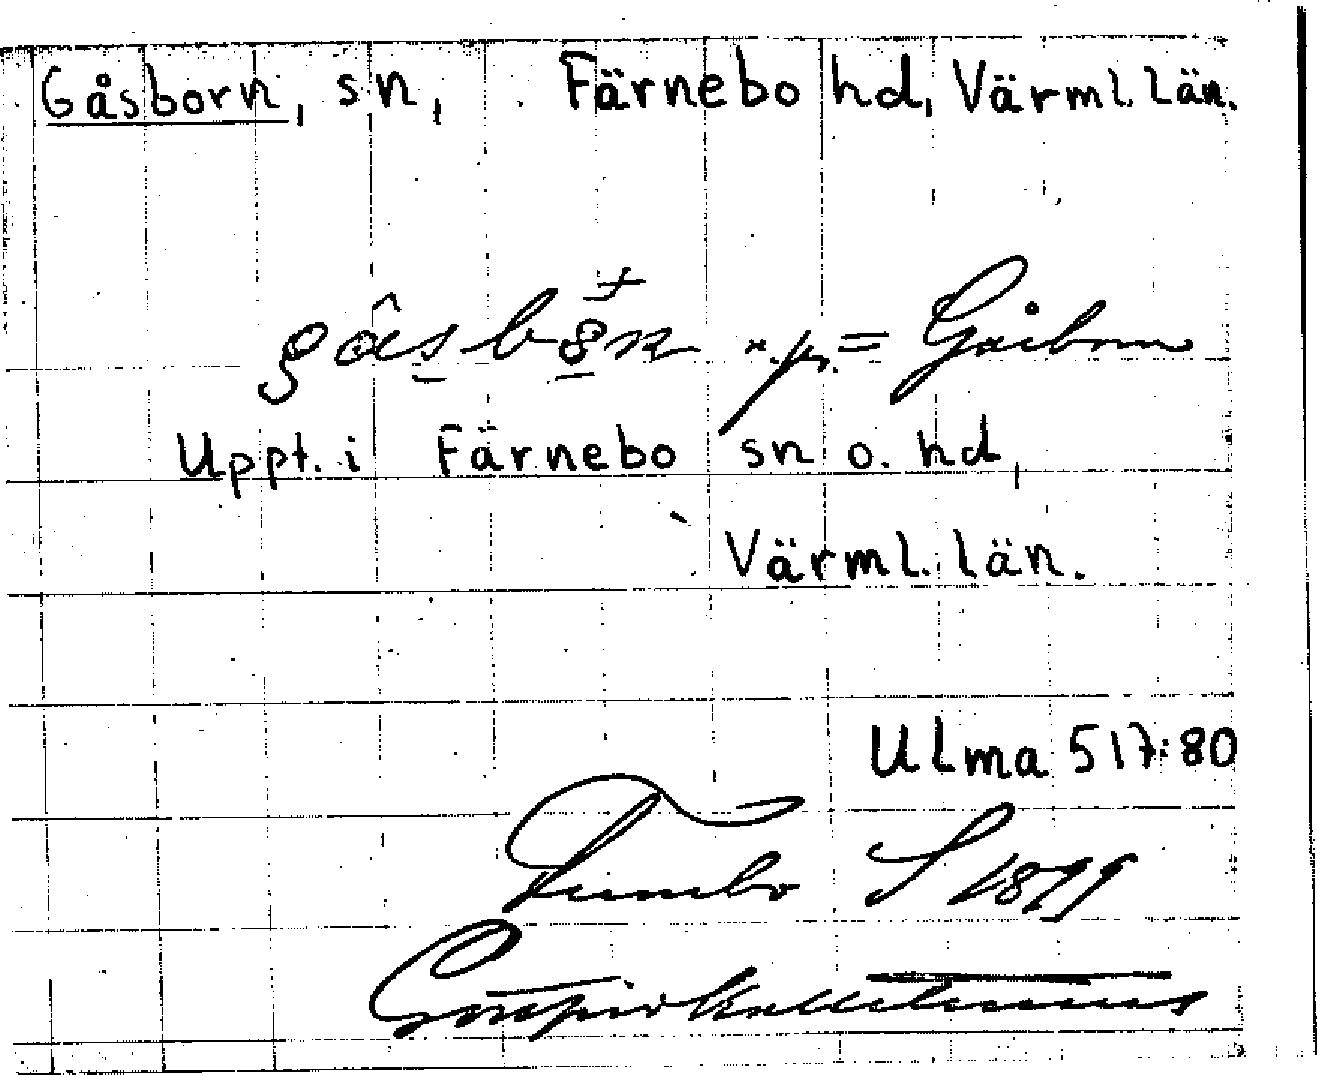 Gåsborn, sn, Färnebo hd, Värml. län.
n.pr. = Gåsborn
Uppt. i Färnebo sn o. hd,
Värml. län.
Ulma 517:80
S 1899